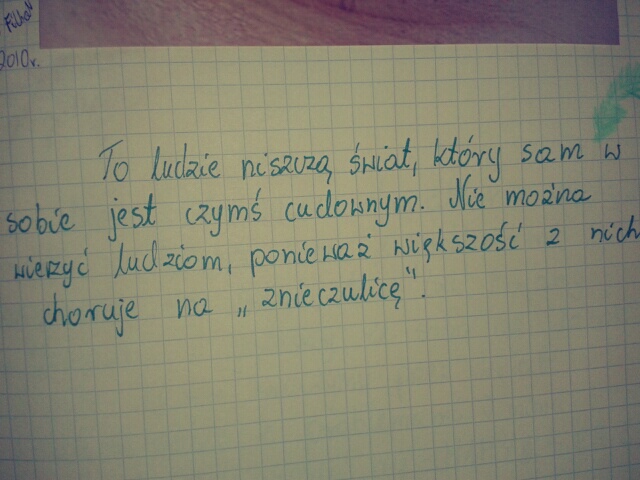 2010r.
To ludzie niszczą świat, który sam w
sobie jest czymś cudownym. Nie można
wierzyć ludziom, ponieważ większość z nich
choruje na „znieczulicę”.